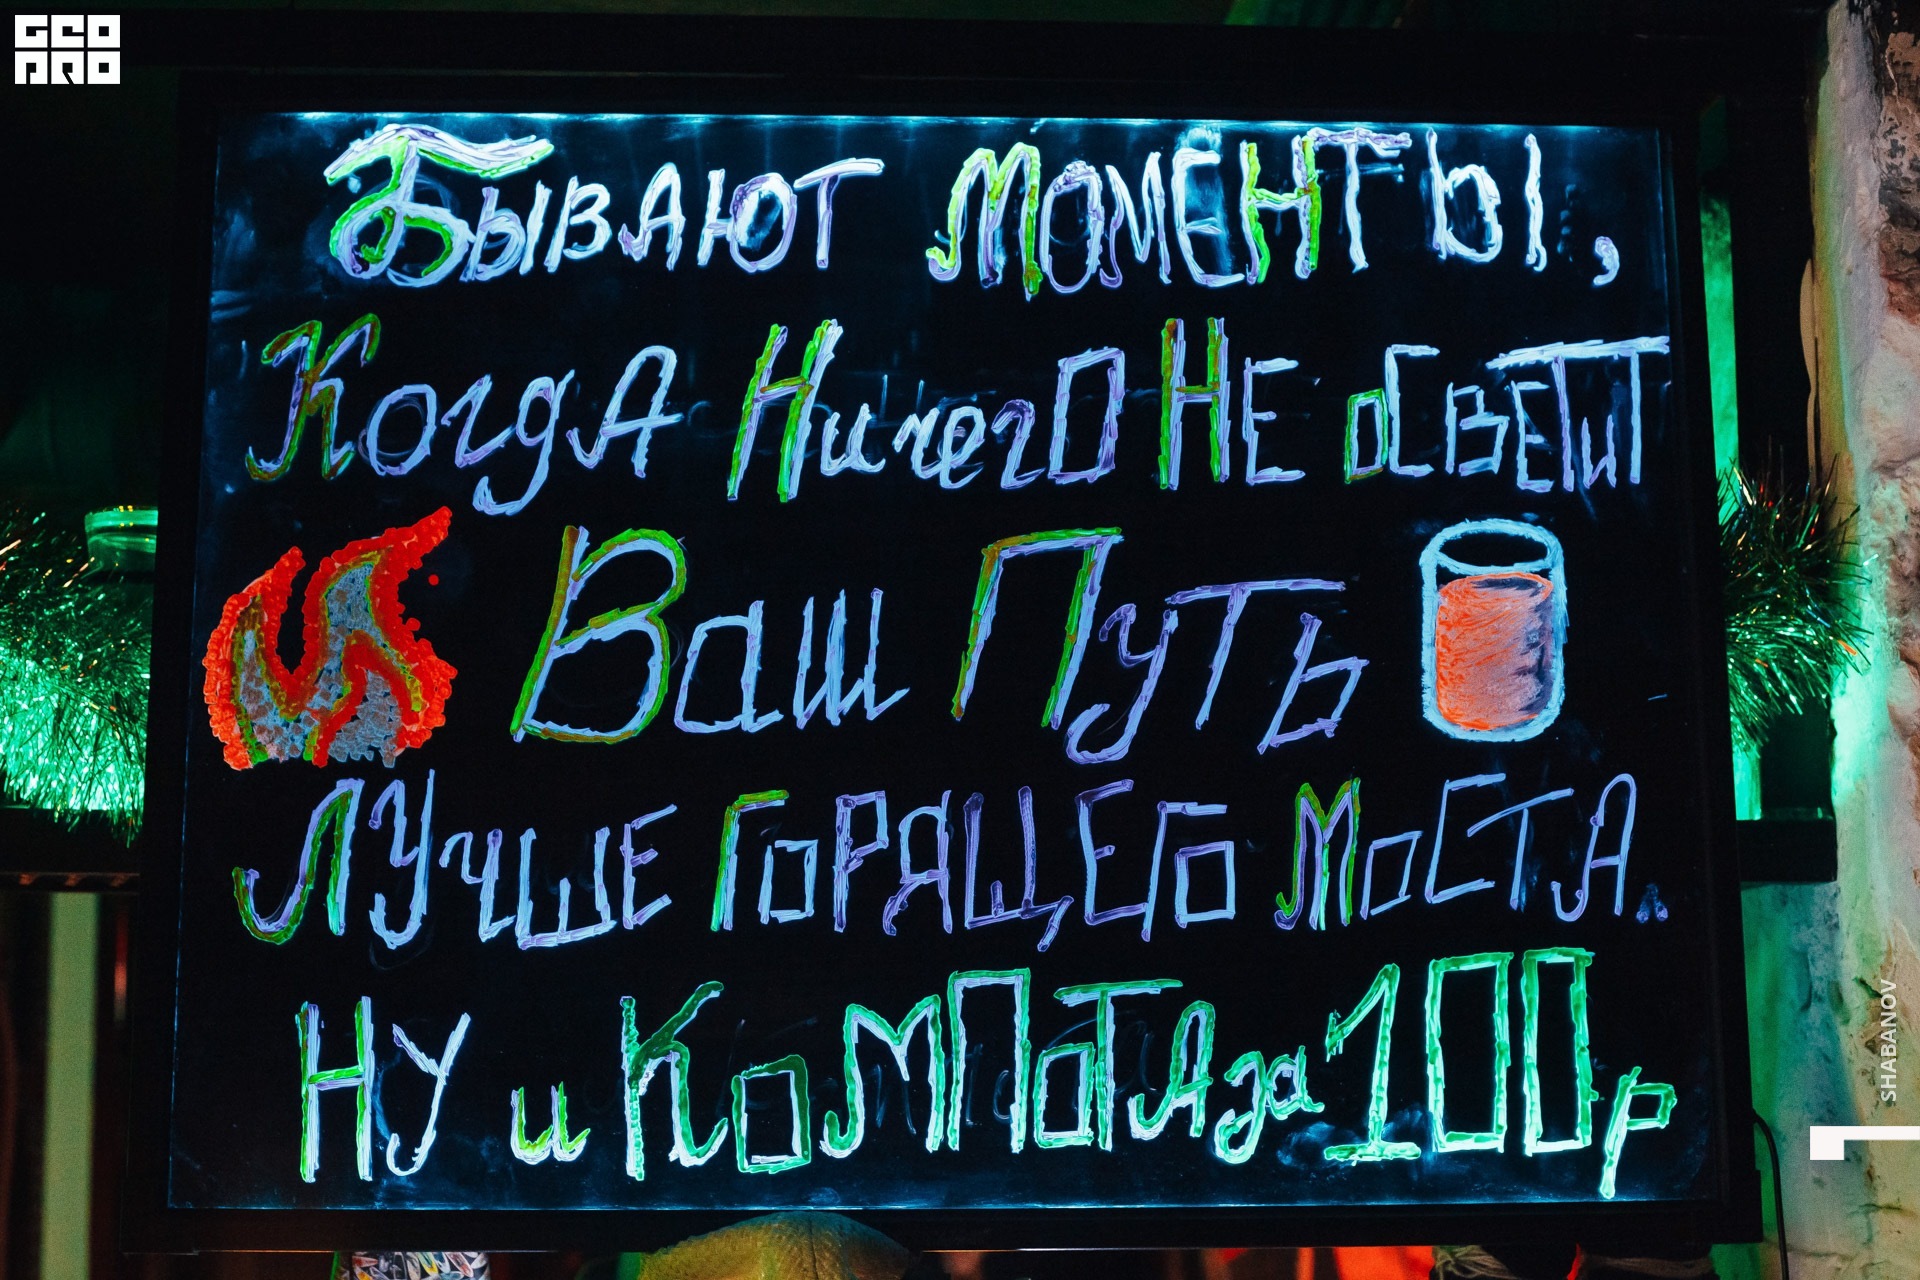 GEO
PRO
Бывают моменты,
Когда Ничего Не осветит
Ваш Путь
Лучше Горящего Моста.
Ну и Компота за 100р
SHABANOV